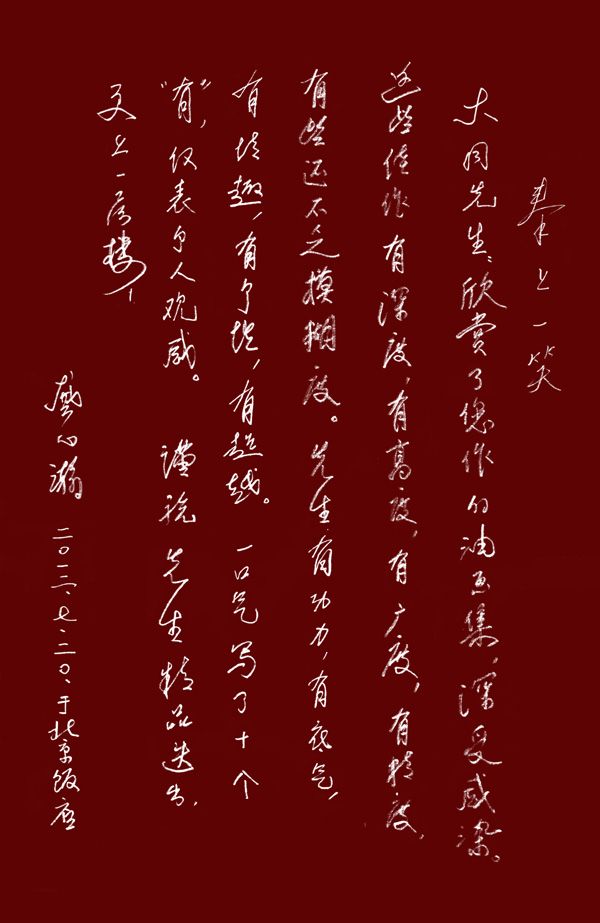 奉上一笑
大同先生:欣赏了您作的油画集,深受感染。
这些佳作有深度,有高度,有广度,有精度,
有些还不乏模糊度。先生有功力,有底气,
有情趣,有个性,有超越。一口气写了十个
“有”,仅表个人观感。 谨祝 先生精品迭出,
更上一层楼!
龚心瀚 二〇一三、七、二〇、于北京饭店